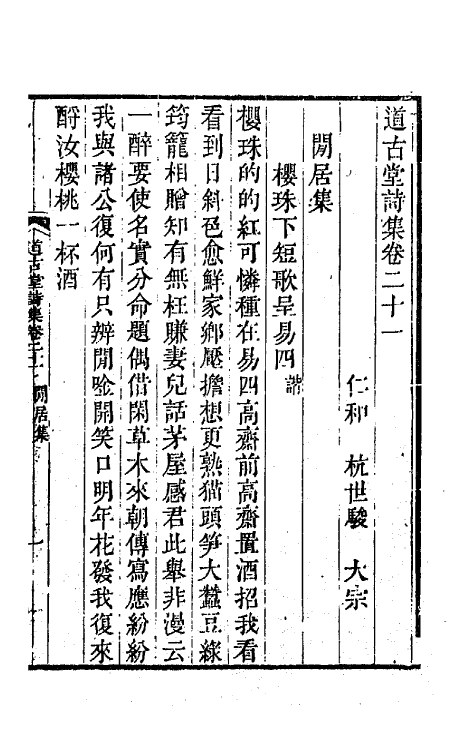 道古堂詩集卷二十一
仁和 杭世駿 大宗
閒居集
櫻珠下短歌呈易四諧
櫻珠的的紅可憐種在易四高齋前高齋置酒招我看
看到日斜色愈鮮家鄉壓擔想更熟猫頭笋大蠶豆綠
筠籠相贈知有無枉賺妻兒話茅屋感君此舉非漫云
一醉要使名實分命題偶借閑草木來朝傳寫應紛紛
我與諸公復何有只辨閒唫開笑口明年花發我復來
酹汝櫻桃一杯酒
道古堂詩集卷二十一 閒居集 一